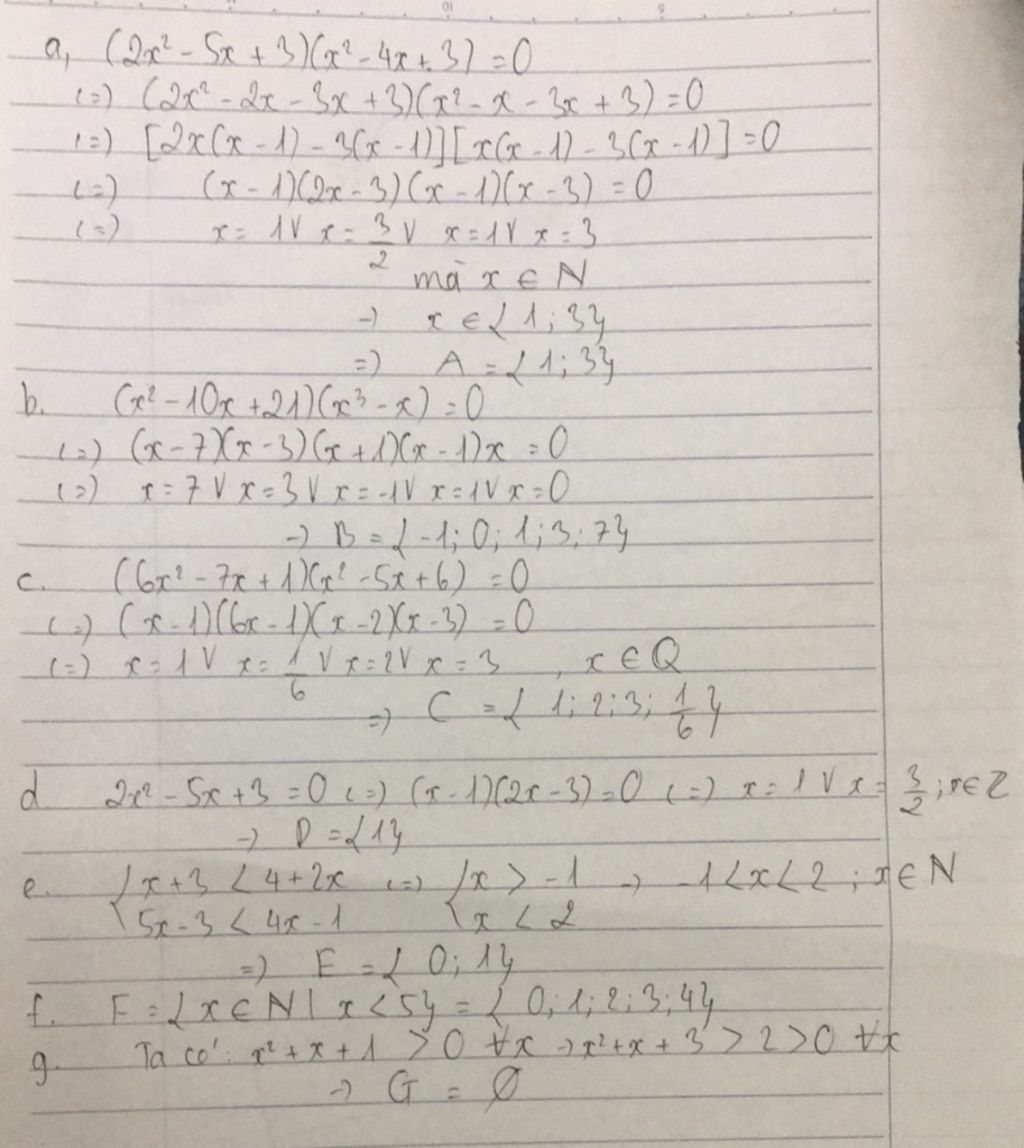 a, (2x² - 5x + 3)(x² - 4x + 3) = 0
(=) (2x² - 2x - 3x + 3)(x² - x - 3x + 3) = 0
(=) [2x(x - 1) - 3(x - 1)][x(x - 1) - 3(x - 1)] = 0
(=) (x - 1)(2x - 3)(x - 1)(x - 3) = 0
(=) x = 1 V x = 3/2 V x = 1 V x = 3
mà x ∈ N
→ x ∈ {1; 3}
=) A = {1; 3}
b. (x² - 10x + 21)(x³ - x) = 0
(=) (x - 7)(x - 3)(x + 1)(x - 1)x = 0
(=) x = 7 V x = 3 V x = -1 V x = 1 V x = 0
→ B = {-1; 0; 1; 3; 7}
c. (6x² - 7x + 1)(x² - 5x + 6) = 0
(=) (x - 1)(6x - 1)(x - 2)(x - 3) = 0
(=) x = 1 V x = 1/6 V x = 2 V x = 3 , x ∈ Q
=) C = {1; 2; 3; 1/6}
d 2x² - 5x + 3 = 0 (=) (x - 1)(2x - 3) = 0 (=) x = 1 V x = 3/2 ; x ∈ Z
→ D = {1}
e. { x + 3 < 4 + 2x (=) { x > -1 → -1 < x < 2 ; x ∈ N
{ 5x - 3 < 4x - 1 { x < 2
=) E = {0; 1}
f. F = {x ∈ N | x < 5} = {0; 1; 2; 3; 4}
g. Ta có: x² + x + 1 > 0 ∀x → x² + x + 3 > 2 > 0 ∀x
→ G = ∅